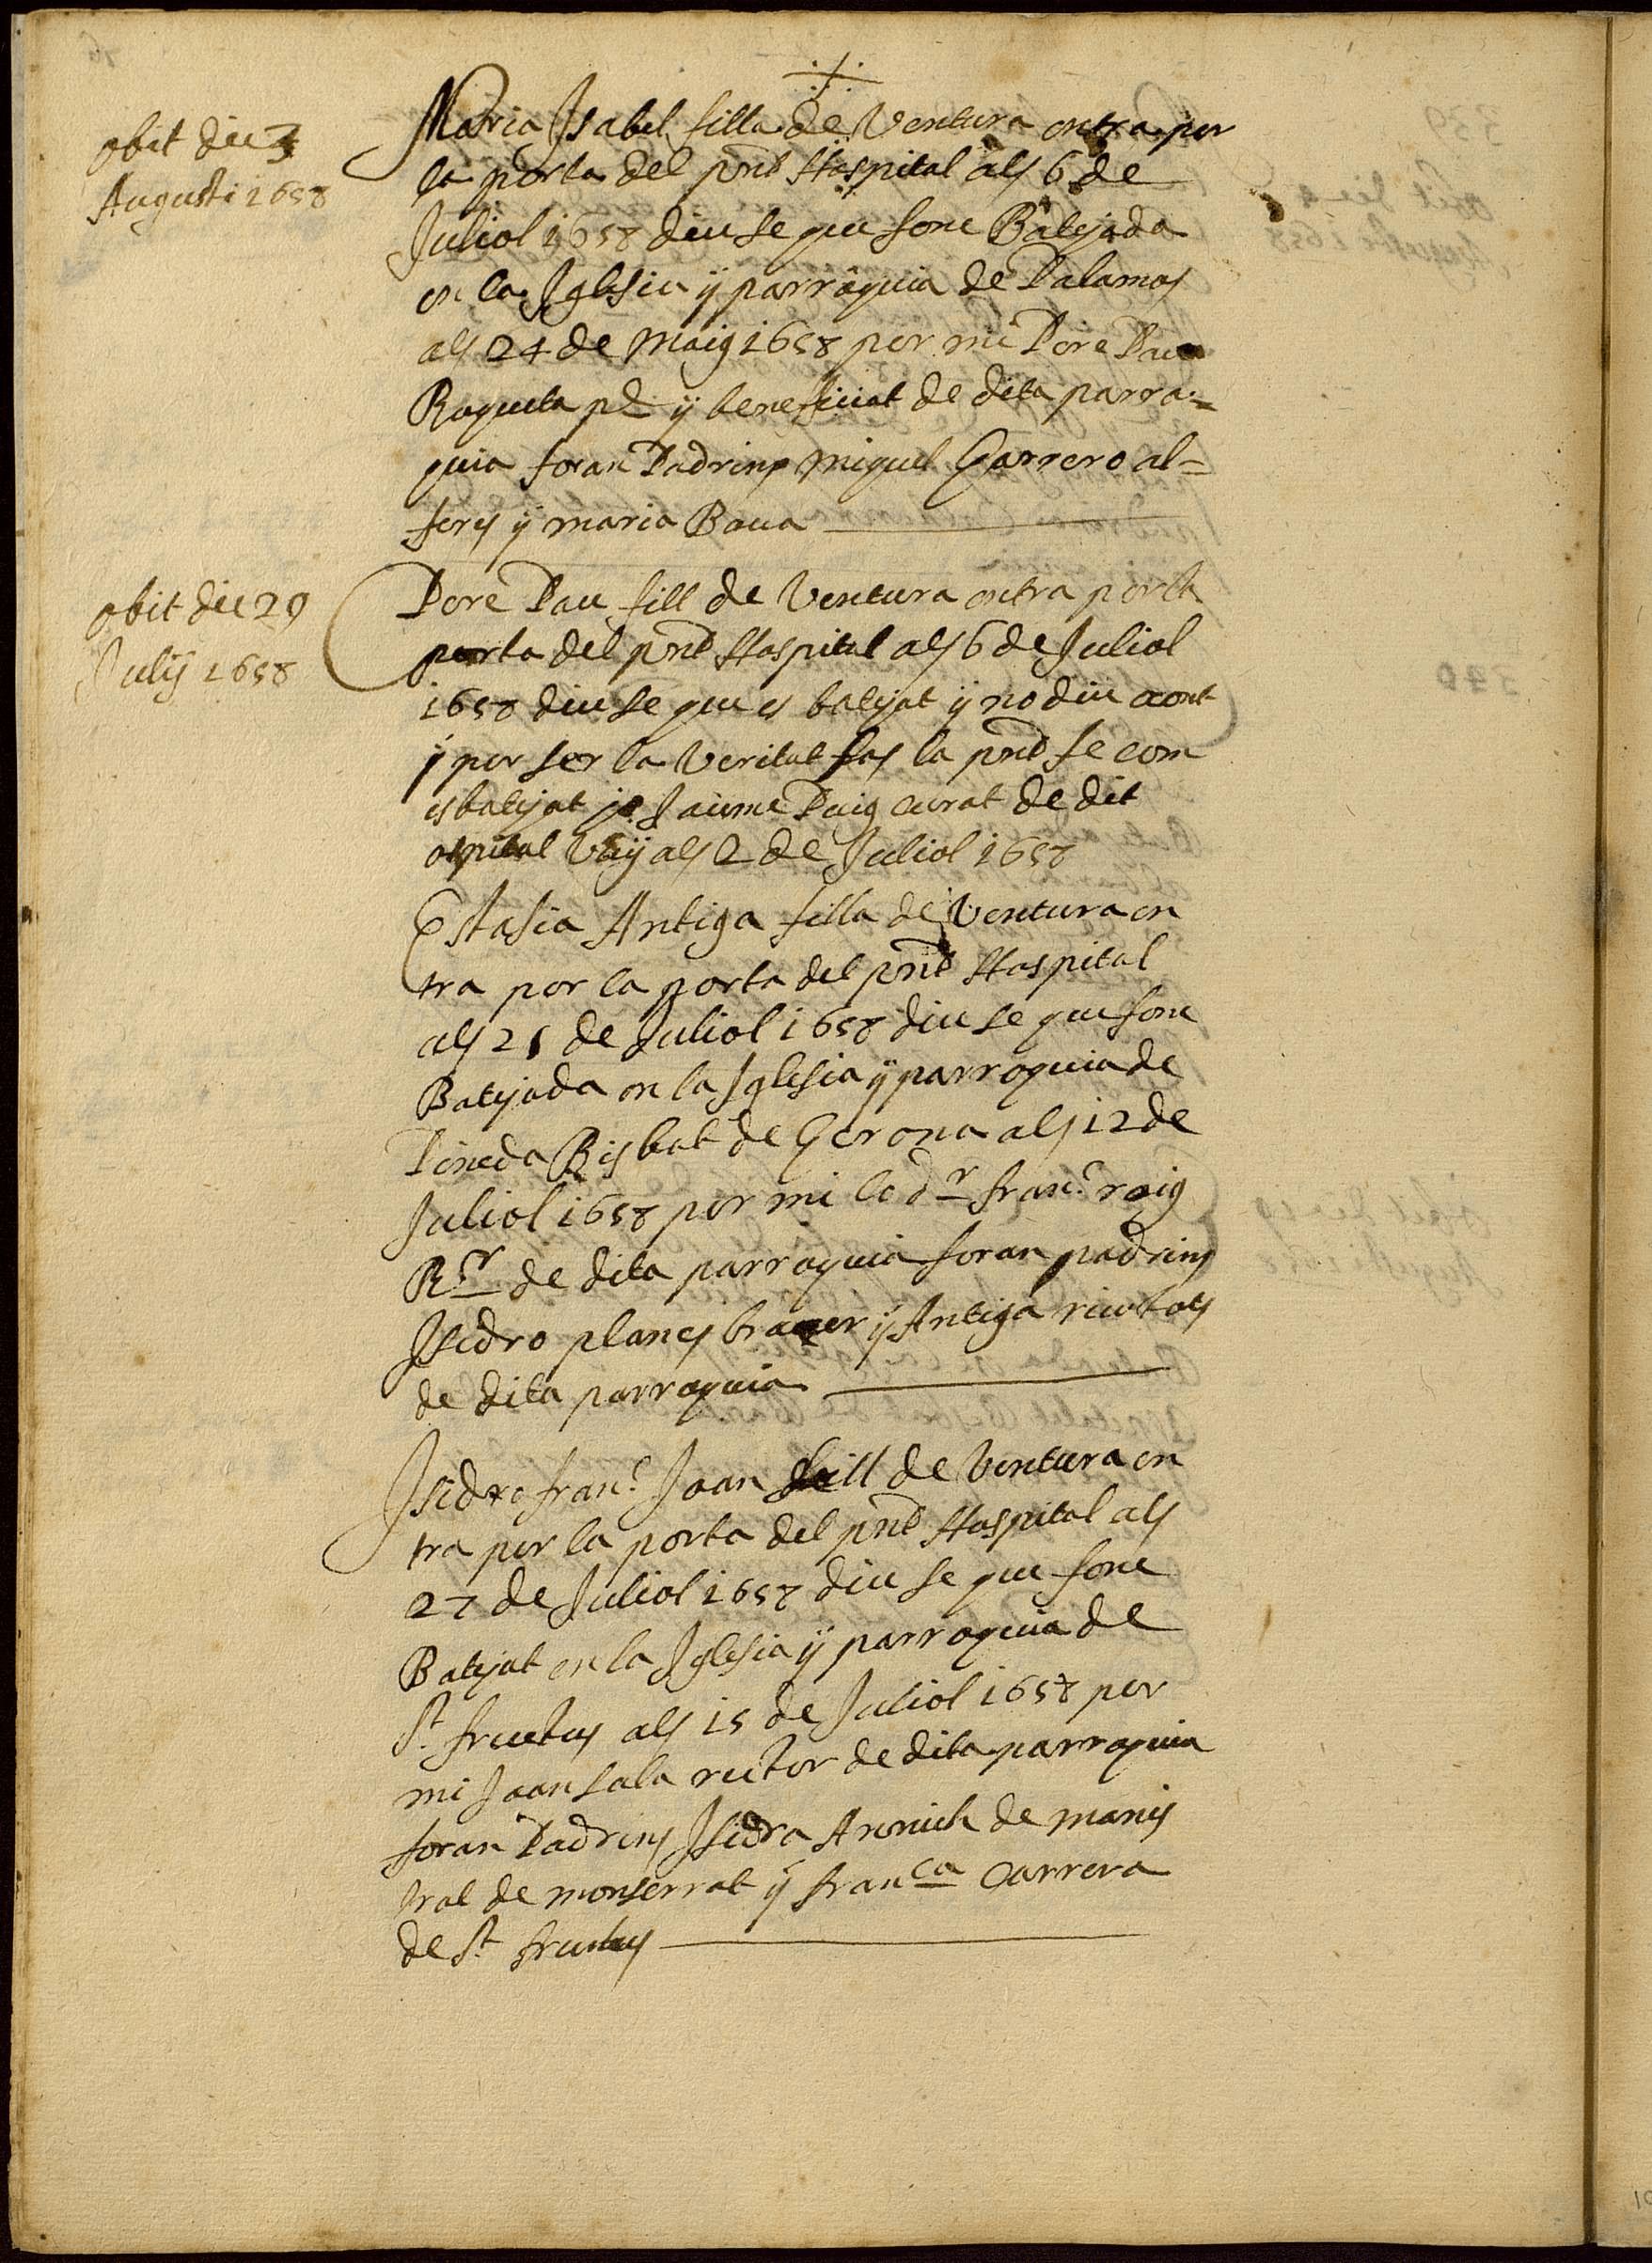 obit die 3
Augusti 1658
Maria Isabel filla de Ventura entra per
la porta del pnt Hospital als 6 de
Juliol 1658 diu se que fonc Batejada
en la Iglesia ÿ parròquia de Palamos
als 24 de Maig 1658 per mi Pere Pau
Roqueta pe ÿ beneficiat de dita parra=
quia foran Padrins Miquel Garrero al=
feris ÿ maria Baua
obit die 29
Julij 1658
Pere Pau fill de Ventura entra per la
porta del pnt Hospital als 6 de Juliol
1658 diu se que es batejat ÿ no diu aont
ÿ per ser la veritat fas la pnt fe com
es batejat jo Jaume Puig curat de dit
ospital vuÿ als 2 de Juliol 1658
Estasia Antiga filla de Ventura en
tra per la porta del pnt Hospital
als 21 de Juliol 1658 diu se que fonc
Batejada en la Iglesia ÿ parroquia de
Pineda Bisbat de Gerona als 12 de
Juliol 1658 per mi lo dr franc. roig
Rtr de dita parroquia foran padrins
Isidro planes bracer ÿ Antiga riubals
de dita parroquia
Isidro franc. Joan fill de Ventura en
tra per la porta del pnt Hospital als
27 de Juliol 1658 diu se que fonc
Batejat en la Iglesia ÿ parroquia de
St. fructus als 15 de Juliol 1658 per
mi Joan sala rector de dita parroquia
foran Padrins Isidro Amich de manis
tral de monserrat ÿ franca Carrera
de St. fructus